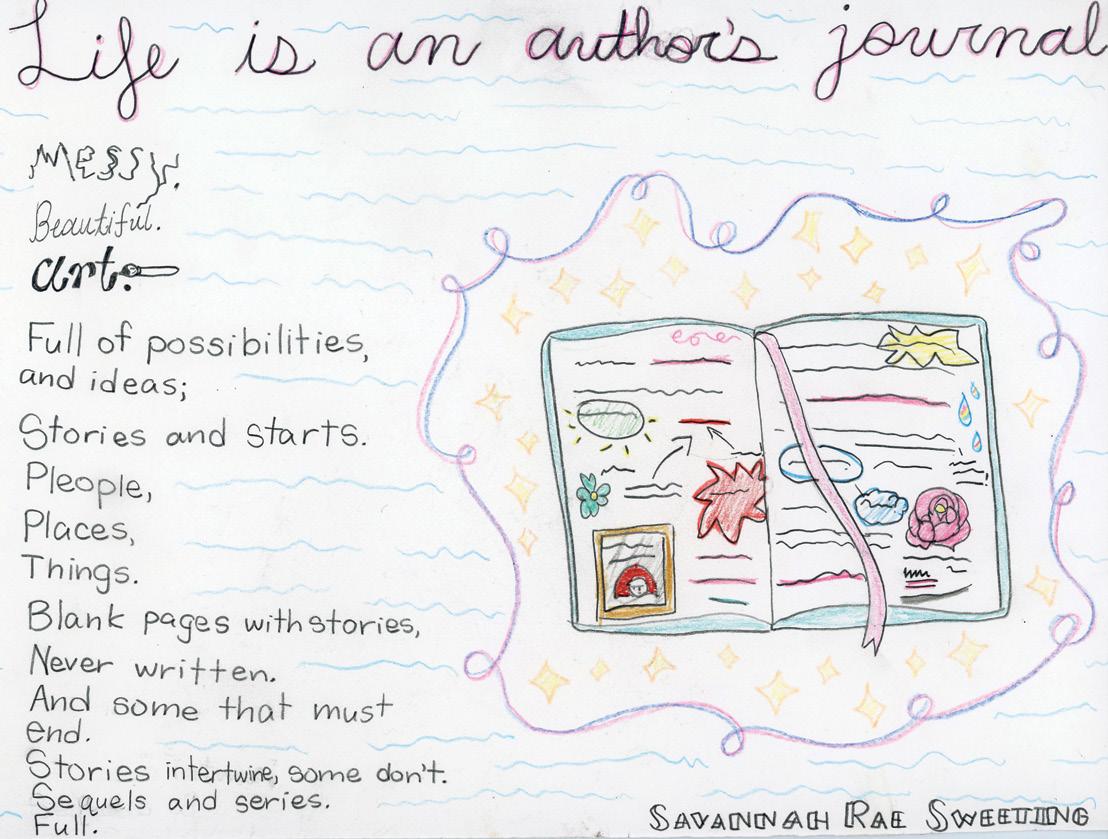 Life is an author's journal
Messy.
Beautiful.
art.
Full of possibilities,
and ideas;
Stories and starts.
Pleople,
Places,
Things.
Blank pages with stories,
Never written.
And some that must
end.
Stories intertwine, some don't.
Sequels and series.
Full.
SAVANNAH RAE SWEETIING